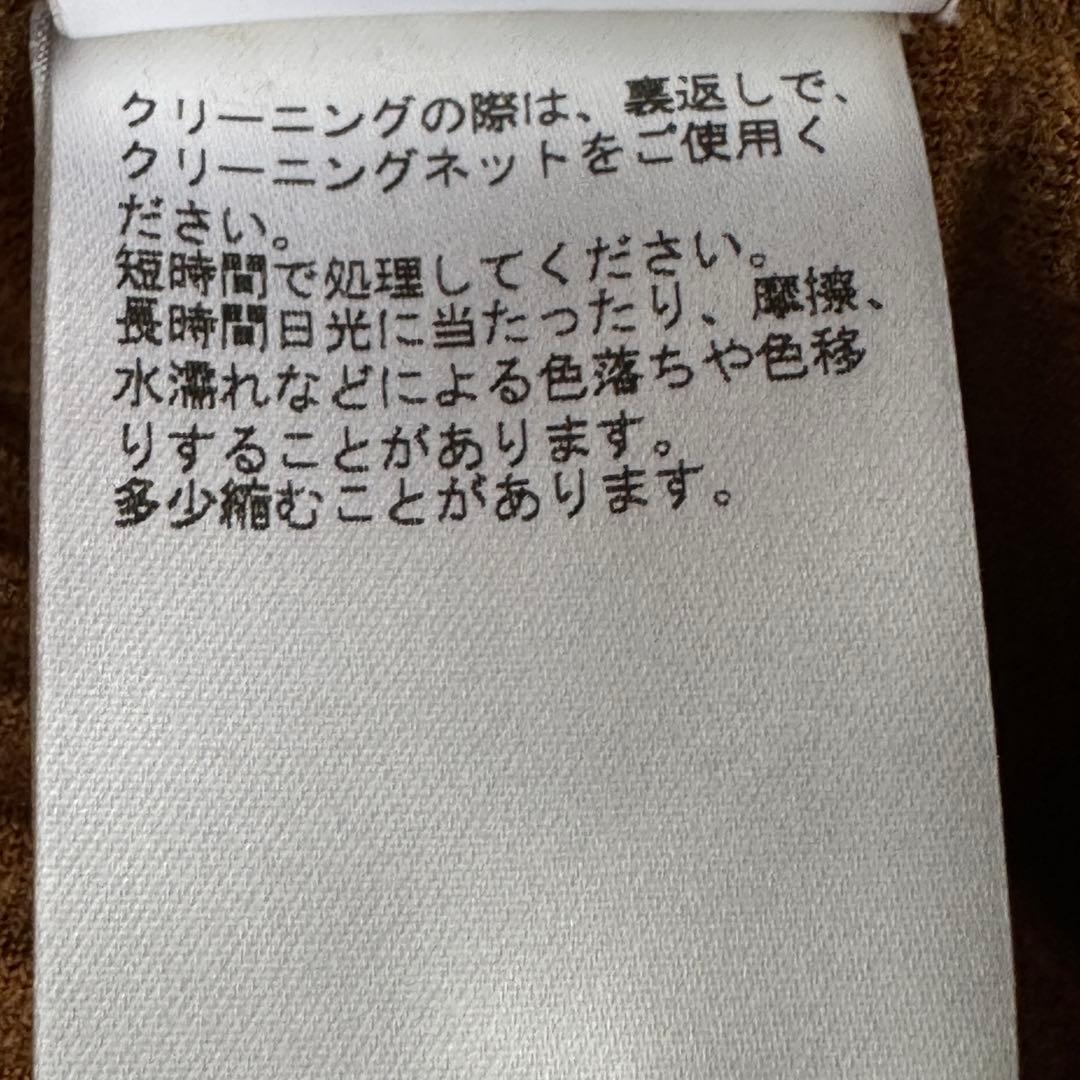 クリーニングの際は、裏返しで、
クリーニングネットをご使用く
ださい。
短時間で処理してください。
長時間日光に当たったり、摩擦、
水濡れなどによる色落ちや色移
りすることがあります。
多少縮むことがあります。